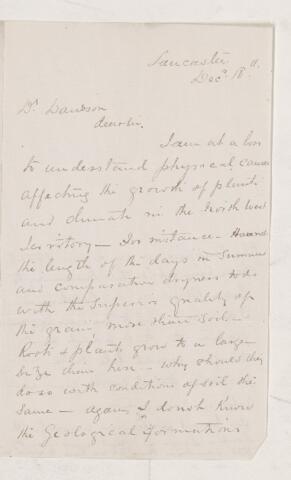 Lancaster
Dec. 18
Dr Dawson
dear Sir.
I am at a loss
to understand physical causes
affecting the growth of plants
and climate in the North West
Territory — For instance —
the length of the days in Summer
and comparative dryness to do
with the superior quality of
the grain, more than soil —
Roots & plants grow to a large
size there — why should they
do so with conditions of soil the
same — again, I do not know
the Geological formations